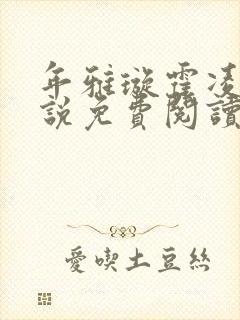 年雅璇霍凌
說免費閱讀
愛喫土豆絲